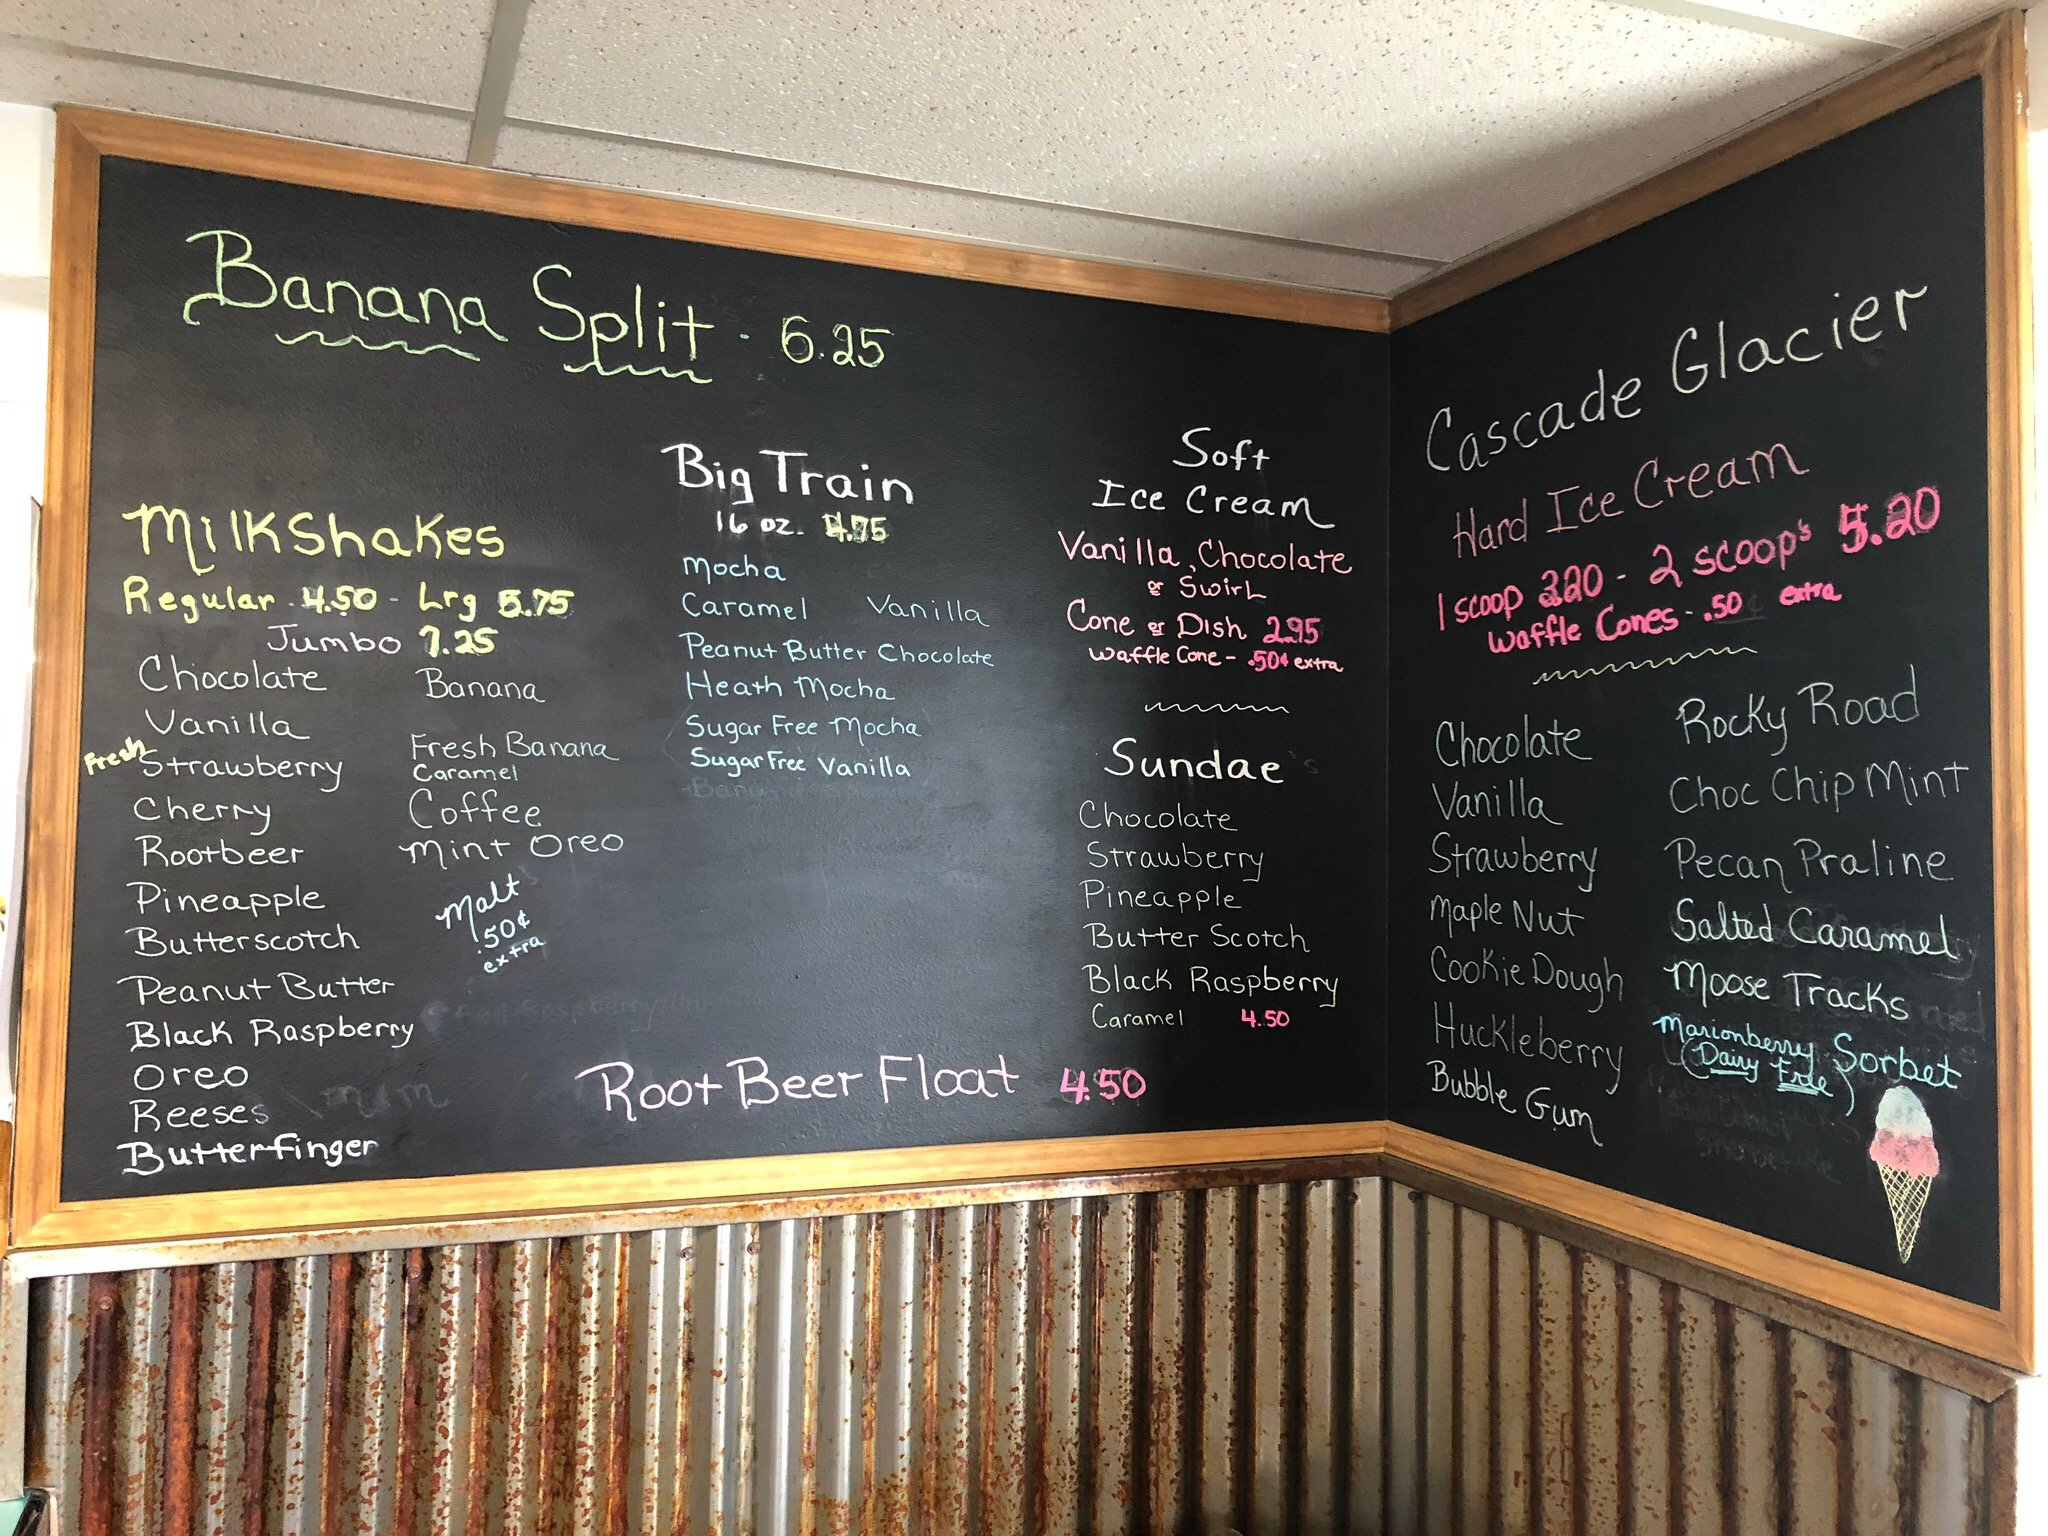 Banana Split - 6.25
Milkshakes
Regular - 4.50 - Lrg 5.75
Jumbo 7.25
Chocolate
Vanilla
Fresh Strawberry
Cherry
Rootbeer
Pineapple
Butterscotch
Peanut Butter
Black Raspberry
Oreo
Reeses
Butterfinger
Banana
Fresh Banana
Caramel
Coffee
Mint Oreo
Malt
.50¢
extra
Big Train
16 oz. 4.75
Mocha
Caramel Vanilla
Peanut Butter Chocolate
Heath Mocha
Sugar Free Mocha
Sugar Free Vanilla
Soft
Ice Cream
Vanilla, Chocolate
or Swirl
Cone or Dish 2.95
Waffle Cone - .50¢ extra
Sundae
Chocolate
Strawberry
Pineapple
Butter Scotch
Black Raspberry
Caramel 4.50
Root Beer Float 4.50
Cascade Glacier
Hard Ice Cream
1 scoop - 2 scoop's 5.20
Waffle Cones - .50 extra
Chocolate
Vanilla
Strawberry
Maple Nut
Cookie Dough
Huckleberry
Bubble Gum
Rocky Road
Choc Chip Mint
Pecan Praline
Salted Caramel
Moose Tracks
Marionberry Sorbet
(Dairy Free)